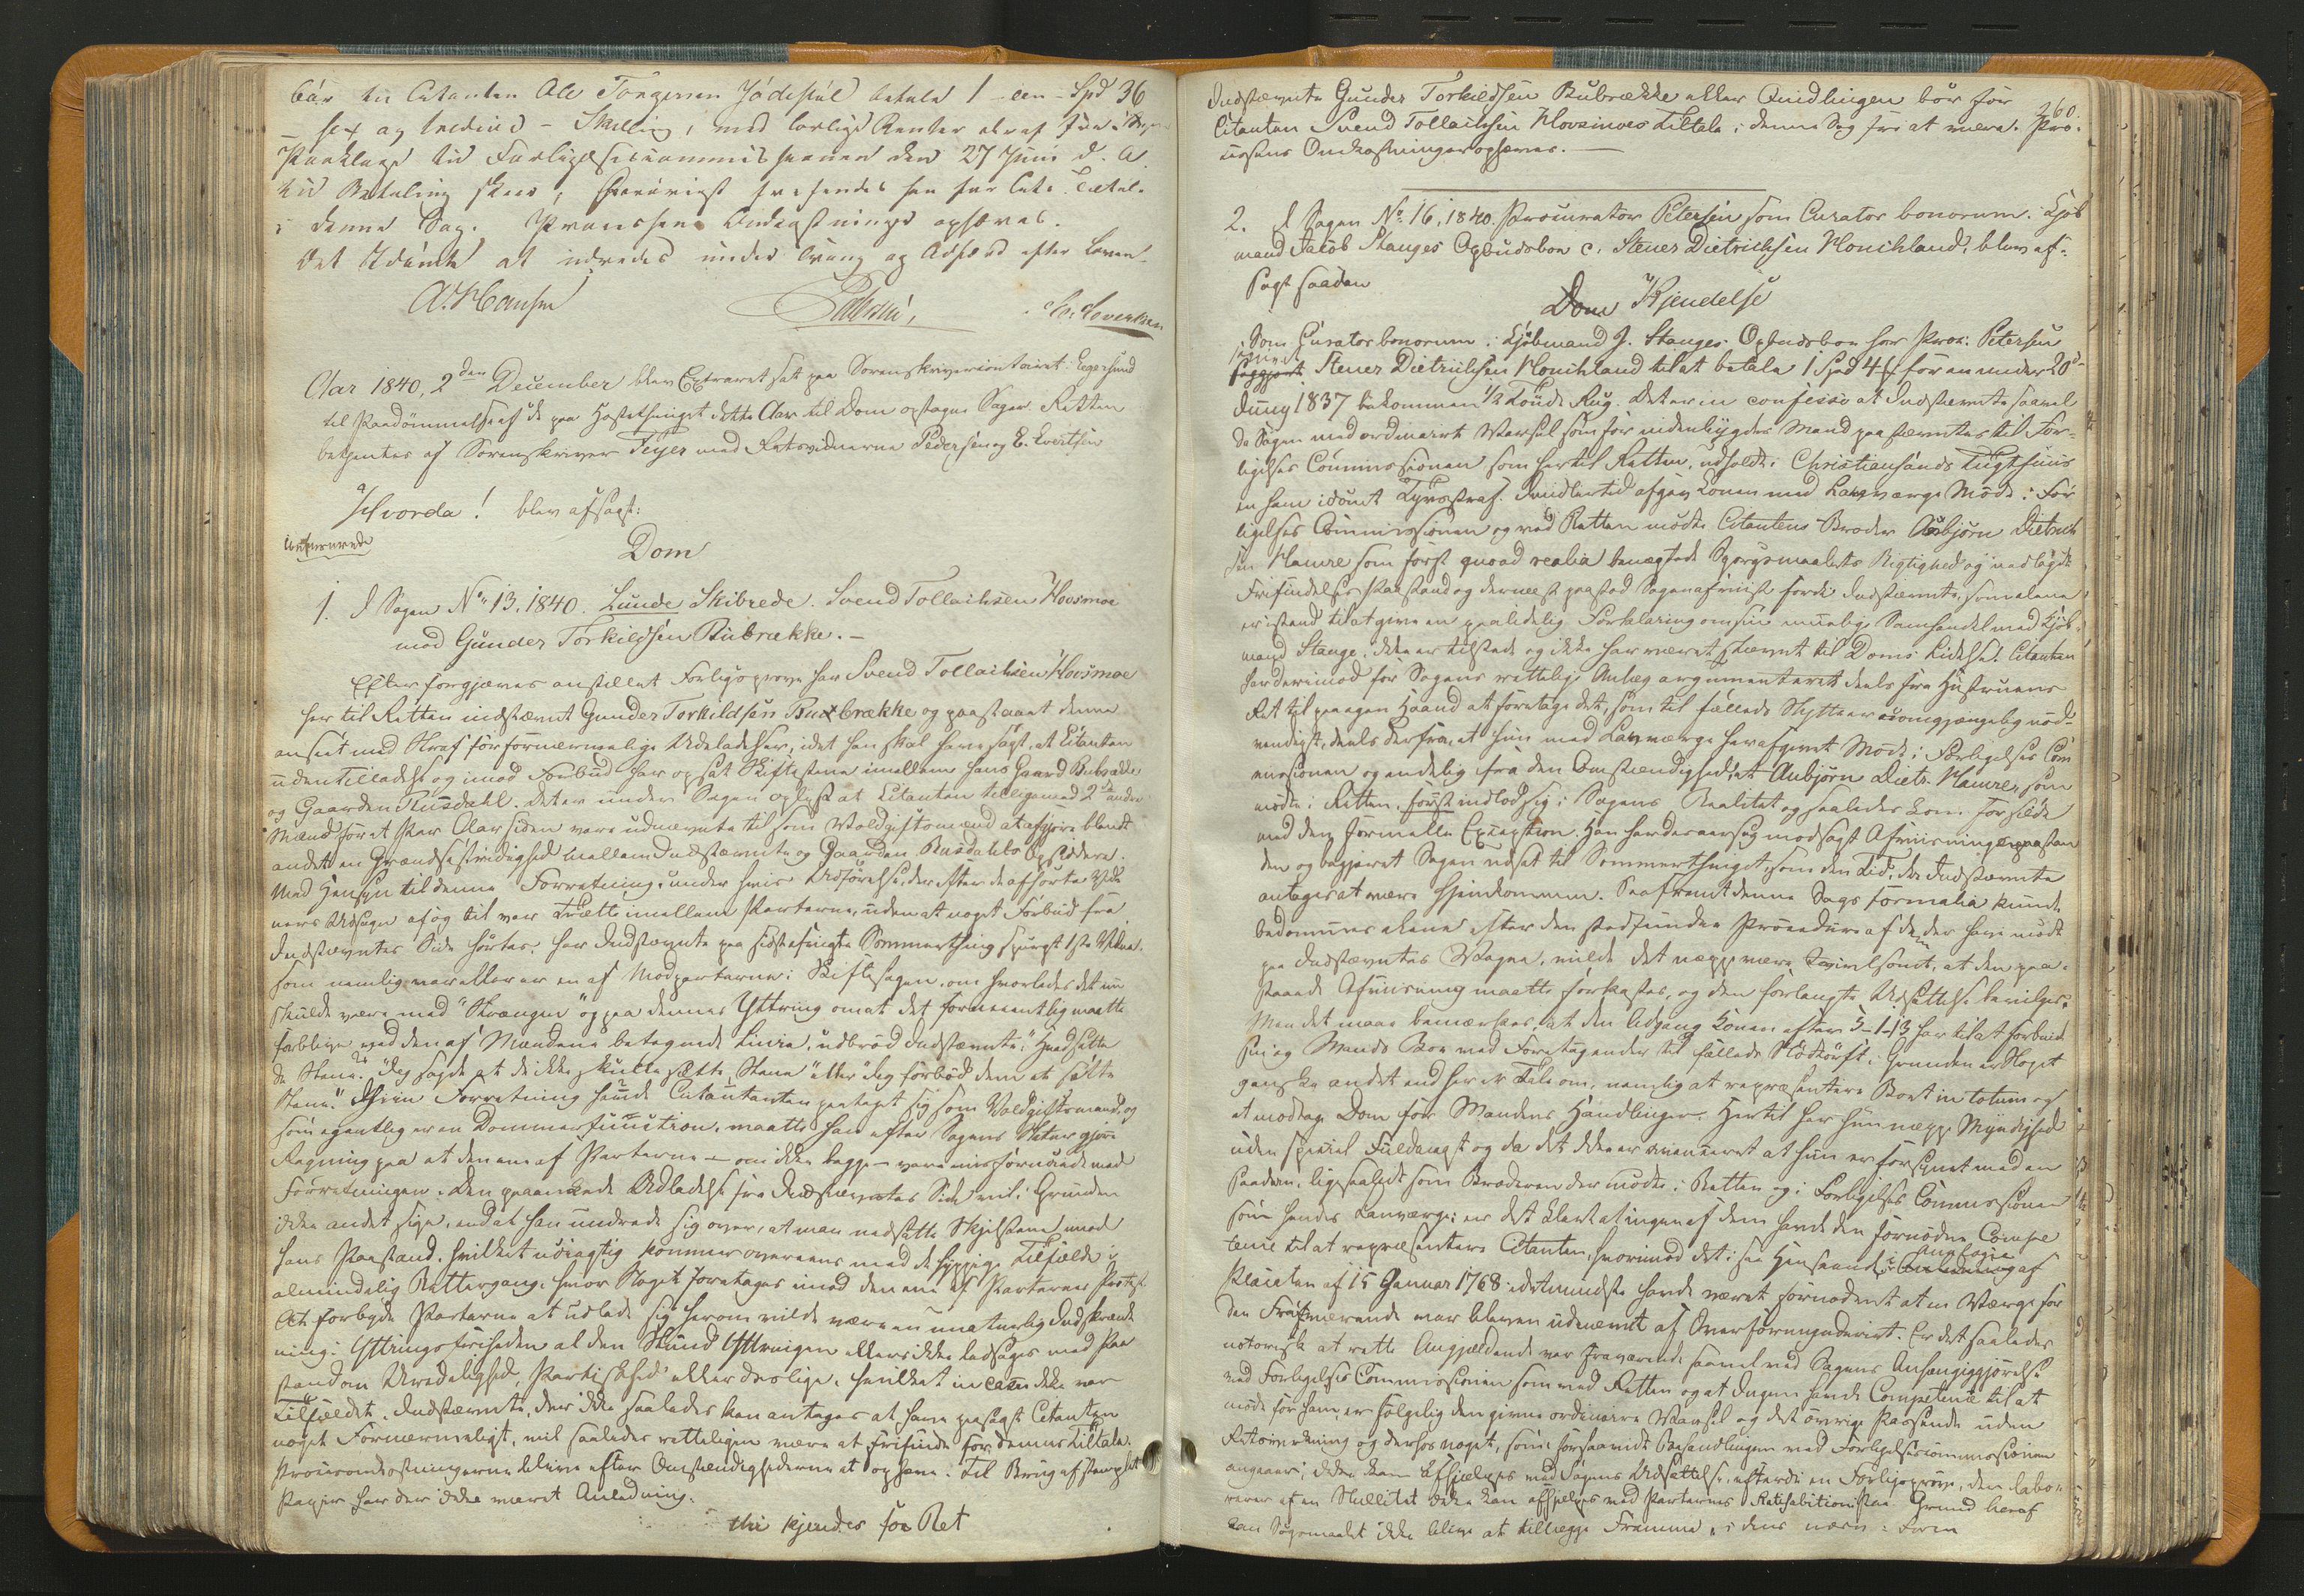 bør til Citanten Ole Tønnesen Jødestøl betale 1 – een – Spd 36
– sex og tredive – Skilling, med lovlige Renter deraf fra
Paaklage til Forligelsescommissionen den 27 Juni d. A.
til Betaling skeer; forøvrigt frifindes han for Cit. Tiltale
i denne Sag. Processens Omkostninger ophæves.
Det Idømte at udredes under Tvang og Adfærd efter Loven.
A. Hansen
Aar 1840, 2den December blev Extraret sat paa Sorenskrivercontoiret i Egersund
til Paadømmelse af de paa Høstethinget dette Aar til Dom optagne Sager. Retten
betjentes af Sorenskriver Feyer med Retsvidnerne Pedersen og E. Evertsen
Hvorda! blev afsagt:
Dom
1. I Sagen No 13, 1840. Lunde Skibrede. Svend Tollachsen Hovsmoe
mod Gunder Torkildsen Bubrække. –
Efter forgjæves anstillet Forligsprøve har Svend Tollachsen Hovsmoe
her til Retten indstævnt Gunder Torkildsen Bubrække og paastaaet denne
anseet med Straf for fornærmelige Udeladelser, idet han skal have sagt, at Citanten
uden Tilladelse og imod Forbud har opsat Skiftestene imellem hans Gaard Bubrække
og Gaarden Rusdahl. Det er under Sagen oplyst at Citanten tilligemed 2de andre
Mænd for et Par Aar siden vare udnævnte til som Voldgiftsmænd at afgjøre blandt
andet en Grændsestridighed mellem Indstævnte og Gaarden Rusdahls Opsiddere.
Med Hensyn til denne Forretning, under hvis Udførelse, der efter de afhørte Vid-
ners Udsagn af og til var Trætte imellem Parterne, uden at noget Forbud fra
Indstævntes Side hørtes, har Indstævnte paa sidstafvigte Sommerthing spurgt 1ste Vidne
som nemlig var eller er en af Modparterne i Skiftesagen, om hvorledes det nu
skulde være med "Strængen" og paa dennes Yttring om at det formeentlig maatte
forblive ved den af Mændene betegnede Linie, udbrød Indstævnte: "Hvad satte
de Stene? Jeg sagde at de ikke skulle sætte Stene" eller "Jeg forbød dem at sætte
Stene." Hiin Forretning havde Citanten paataget sig som Voldgiftsmand, og
som egentlig er en Dommerfunction, maatte han efter Sagens Natur gjøre
Regning paa at den ene af Parterne – om ikke begge – vare misfornøiede med
Forretningen. Den paaankede Udladelse fra Indstævntes Side vil i Grunden
ikke andet sige, end at han undrede sig over, at man nedsatte Skjelstene imod
hans Paastand, hvilket nøiagtig kommer overeens med de hyppige Tilfælde i
almindelig Rettergang, hvor Noget foretages imod den ene af Parternes Protest.
At forbyde Parterne at udlade sig herom vilde være en unaturlig Indskrænk-
ning i Yttringsfriheden al den Stund Yttringen ellers ikke ledsages med Paa-
stand om Uredelighed, Partiskhed eller deslige, hvilket in casu ikke var
Tilfældet. Indstævnte, der ikke saaledes kan antages at have paasagt Citanten
noget Fornærmeligt, vil saaledes retteligen være at frifinde for dennes Tiltale.
Procesomkostningerne blive efter Omstændighederne at ophæve. Til Brug af stemplet
Papir har der ikke været Anledning.
thi kjendes for Ret
260.
Indstævnte Gunder Torkildsen Bubrække eller Qvidlingen bør for
Citanten Svend Tollachsen Hovsmoes Tiltale i denne Sag fri at være. Pro-
cessens Omkostninger ophæves. –
2. I Sagen No 16, 1840. Procurator Petersen som Curator bonorum i Kjøb-
mand Jacob Stanges Opbudsboe c. Stener Dietrichsen Mouchland, blev af-
sagt saadan
Dom Kjendelse
Som Curator bonorum i Kjøbmand J. Stanges Opbudsboe har Proc. Petersen
Stener Dietrichsen Mouchland til at betale 1 Spd 4 for en under 20de
Juny 1837 bekommen 1/2 Tønde Rug. Det er in confesso at Indstævnte saavel
da Sagen med ordinairt Varsel som for indenbygdes Mand paastævntes til For-
ligelses Commissionen som her til Retten, udholdt i Christiansands Tugthuus
en ham idømt Tyvsstraf. Imidlertid afgav Konen med Laugværge Møde i For-
ligelses Commissionen og ved Retten mødte Citantens Broder Asbjørn Dietrich-
sen Hamre som først quoad realia benægtede Søgsmaalets Rigtighed og nedlagde
Frifindelses Paastand og dernæst paastod Sagen afviist fordi Indstævnte, som alene
er istand til at give en paalidelig Forklaring om sin muelige Samhandel med Kjøb-
mand Stange, ikke er tilstede og ikke har været stævnt til Doms Lidelse. Citanten
har derimod for Sagens rettelige Anlæg argumenteret deels fra Hustruens
Ret til paa egen Haand at foretage det, som til fælleds Nytte er uomgjængelig nød-
vendigt, deels derfra, at hun med Laugværge har afgivet Møde i Forligelses Com-
missionen og endelig fra den Omstændighed, at Asbjørn Dietr. Hamre, som
mødte i Retten, først indlod sig i Sagens Realitet og saaledes kom for silde
med den formelle Exception. Han har derhos modsagt Afviisningspaastan-
den og begjæret Sagen udsat til Sommerthinget, som den Tid, da Indstævnte
antages at være hjemkommen. Saafremt denne Sags formalia kunde
bedømmes alene efter den stedfundne Procedure af dem, der have mødt
paa Indstævntes Vegne, vilde det neppe være tvivlsomt, at den paa-
staaede Afviisning maatte forkastes, og den forlangte Udsættelse bevilges.
Men det maae bemærkes, at den Adgang Konen efter 5–1–13 har til at forbinde
sin og Mands Boe ved Foretagender til fælleds Nødtørft, i Grunden er Noget
ganske andet end her er Tale om, nemlig at repræsentere Boet in totum og
at modtage Dom for Mandens Handlinger. Hertil har hun neppe Myndighed
uden speciel Fuldmagt og da det ikke er at hun er forsynet med en
saadan, ligesaalidt som Broderen der mødte i Retten og i Forligelses Commissionen
som hendes Laugværge; er det klart at ingen af dem havde den fornødne Compe-
tence til at repræsentere Citanten, hvorimod det i saa Henseende i Analogie af
Placaten af 15 Januar 1768 idetmindste havde været fornødent at en Værge for
den Fraværende var bleven udnævnt af Overformynderiet. Er det saaledes
notorisk at rette Angjældende var fraværende saavel ved Sagens Anhængiggjørelse
ved Forligelses Commissionen som ved Retten og at Ingen havde Competence til at
møde for ham, er følgelig den givne ordinaire Varsel og det øvrige Passerede uden
Retsvirkning og derhos noget, som forsaavidt Behandlingen ved Forligelsescommissionen
angaaer, ikke kan afhjælpes med Sagens Udsættelse, efterdi en Forligsprøve, der labo-
rerer af en Nullitet ikke kan afhjelpes med Parternes Ratihabition. Paa Grund heraf
kan Søgsmaalet ikke blive at tillægge Fremme, i dens nærv: Form